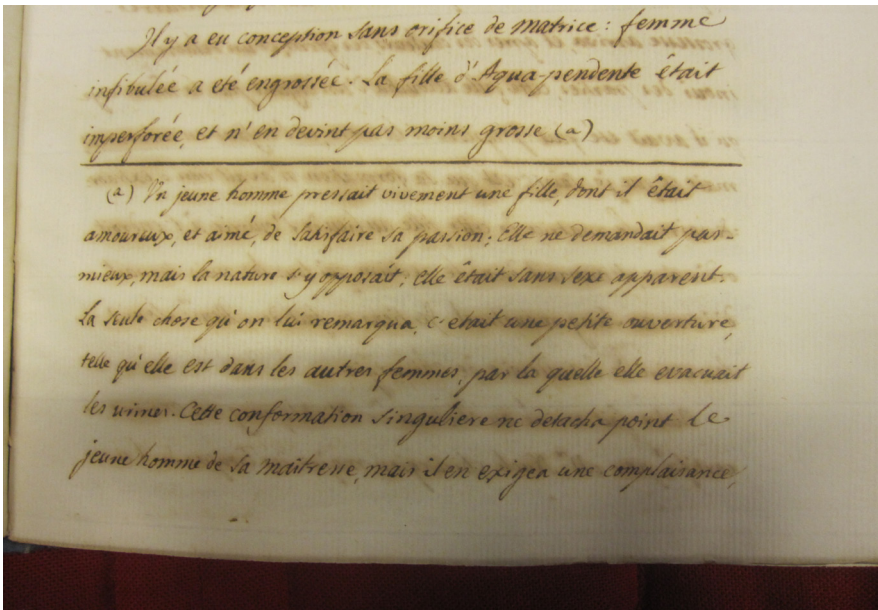 Il y a eu conception sans orifice de matrice : femme
infibulée a eté engrossée. La fille d'Aqua-pendente était
imperforée, et n'en devint pas moins grosse (a)
(a) Un jeune homme pressait vivement une fille, dont il était
amoureux, et aimé, de satisfaire sa passion; Elle ne demandait pas-
mieux, mais la nature s'y opposait; elle était sans sexe apparent.
La seule chose qu'on lui remarqua, c'etait une petite ouverture,
telle qu'elle est dans les autres femmes, par la quelle elle evacuait
les urines. Cette conformation singuliere ne detacha point le
jeune homme de sa maitresse, mais il en exigea une complaisance,